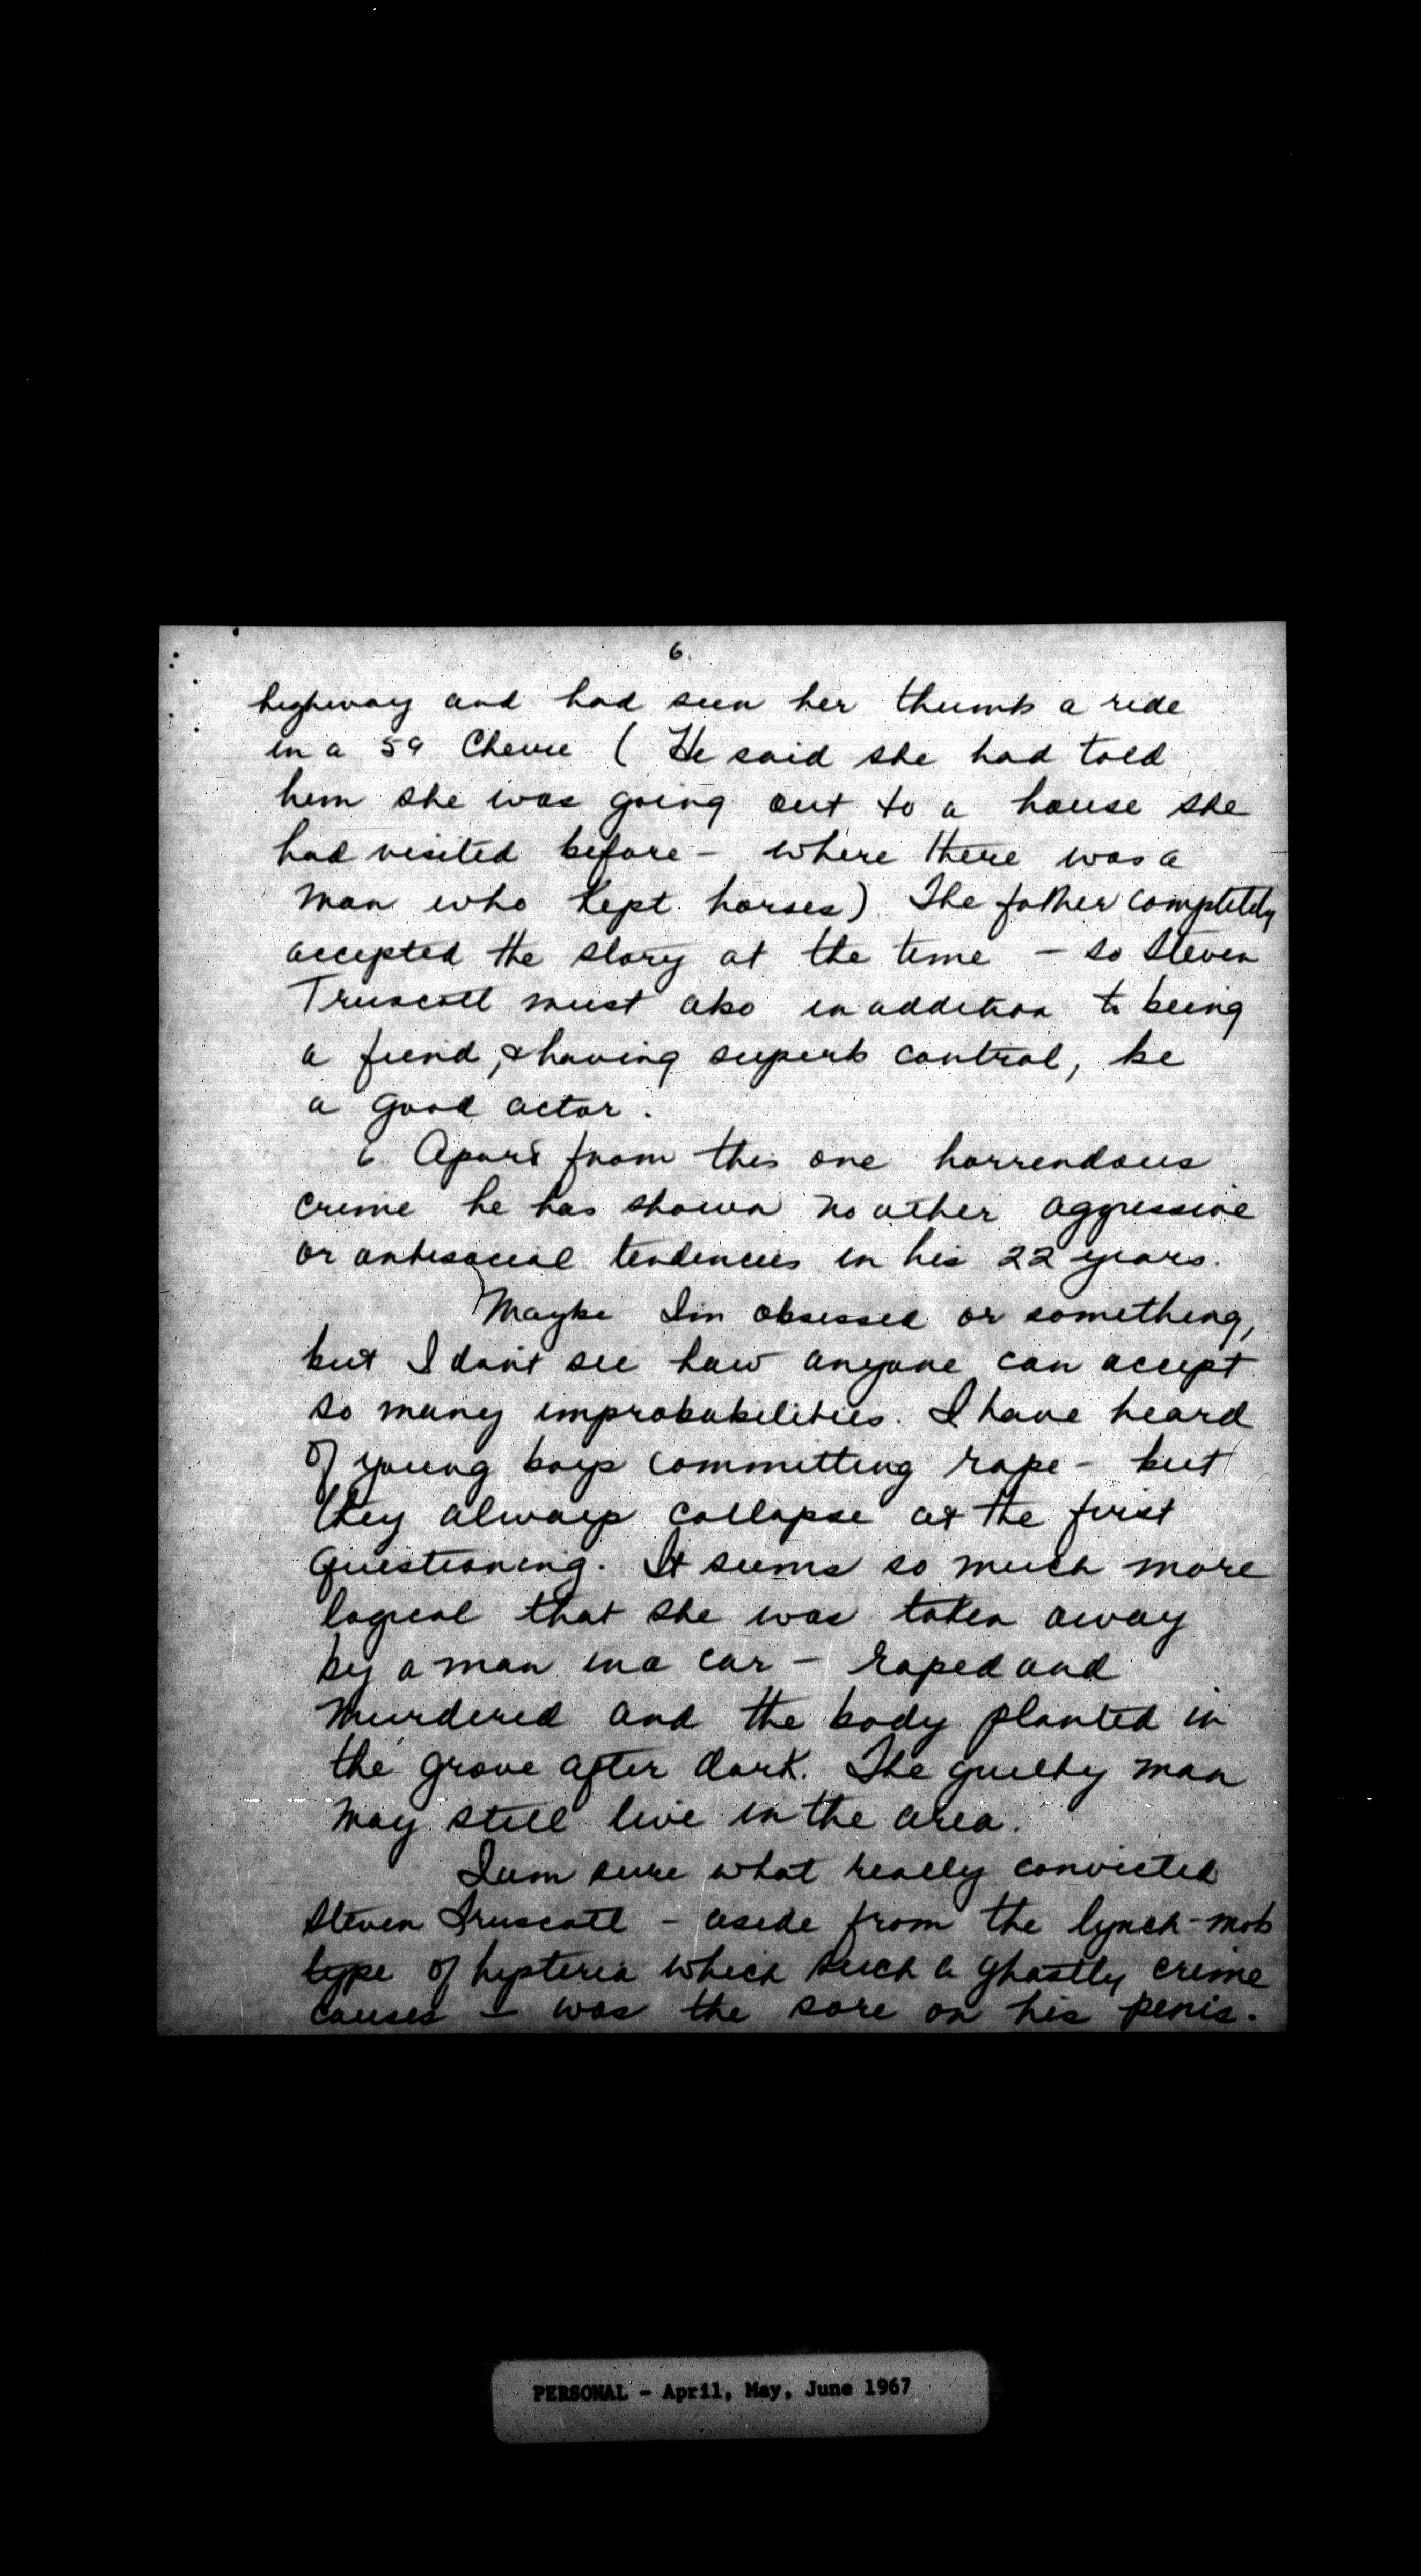 6.
highway and had seen her thumb a ride
in a 59 Chevie (He said she had told
him she was going out to a house she
had visited before - where there was a
man who kept horses) The father completely
accepted the story at the time - so Steven
Truscott must also in addition to being
a fiend, & having superb control, be
a good actor.
6. Apart from this one horrendous
crime he has shown no other aggressive
or antisocial tendencies in his 22 years.
Maybe I'm obsessed or something,
but I don't see how anyone can accept
so many improbabilities. I have heard
of young boys committing rape - but
they always collapse at the first
questioning. It seems so much more
logical that she was taken away
by a man in a car - raped and
murdered and the body planted in
the grove after dark. The guilty man
may still live in the area.
I am sure what really convicted
Steven Truscott - aside from the lynch-mob
type of hysteria which such a ghastly crime
causes - was the sore on his penis.
PERSONAL - April, May, June 1967